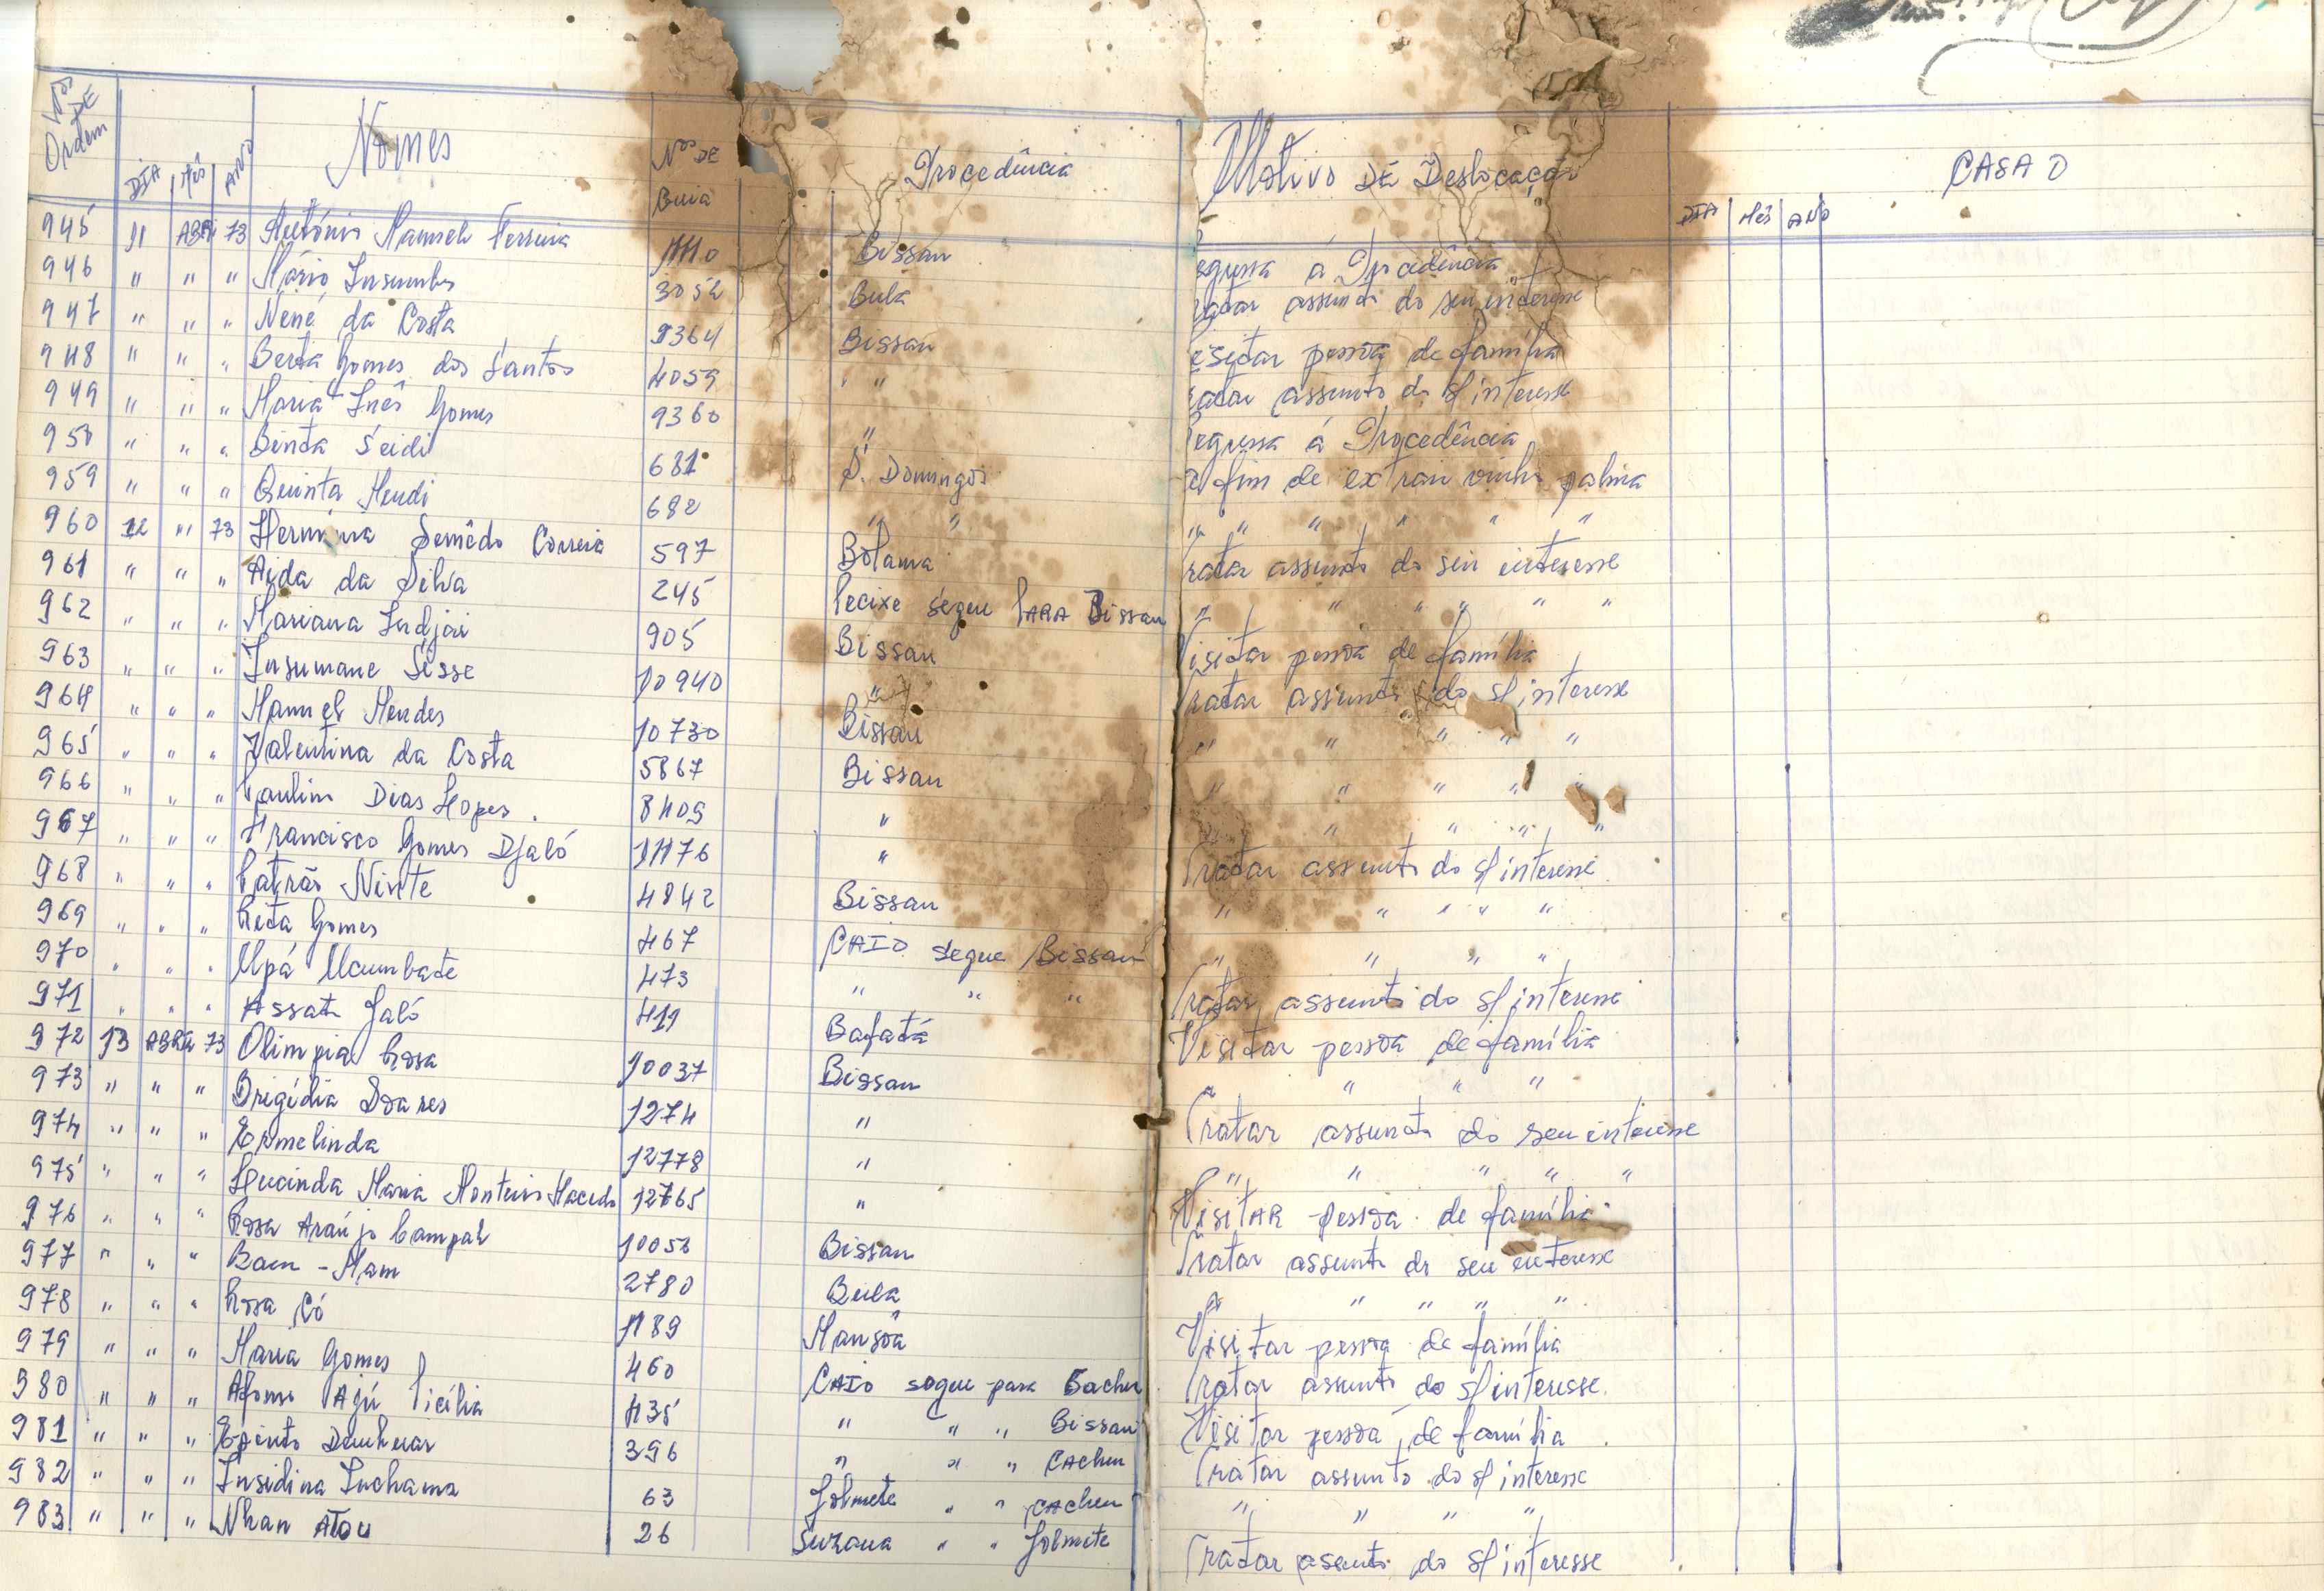 Nos DE Ordem DIA Mês ANO Nomes Nos DE Guia Procedência Motivo DE Deslocação DIA Mês ANO CASA O
945 11 ABR 73 António Manuel Ferreira 11110 Bissau egressa á Procedência
946 " " " Mário Insumbo 3052 Bula ratar assunto do seu interesse
947 " " " Nené da Costa 9364 Bissau isitar pessoa de família
948 " " " Berta Gomes dos Santos 4059 " " ratar assunto do s/interesse
949 " " " Maria Inês Gomes 9360 " Regressa á Procedência
950 " " " Binta Seidi 681 S. Domingos a fim de extrair vinho palma
959 " " " Quinta Mendi 682 " " " " " " " "
960 12 " 73 Hermínia Semêdo Correia 597 Bolama Tratar assunto do seu interesse
961 " " " Aida da Silva 245 Pecixe segue PARA Bissau " " " " " "
962 " " " Mariana Indjai 905 Bissau Visitar pessoa de família
963 " " " Insumane Sisse 10940 " Tratar assunto do s/interesse
964 " " " Manuel Mendes 10730 Bissau " " " " "
965 " " " Valentina da Costa 5867 Bissau " " " " "
966 " " " Paulino Dias Lopes 8409 " " " " " "
967 " " " Francisco Gomes Djaló 11176 " Tratar assunto do s/interesse
968 " " " Patrão Ninte 4842 Bissau " " " " "
969 " " " Rita Gomes 467 CAIO segue Bissau " " " "
970 " " " Upá Ucumbate 473 " " " Tratar assunto do s/interesse
971 " " " Assatu Jaló 419 Bafatá Visitar pessoa de família
972 13 ABRIL 73 Olimpia Rosa 10037 Bissau " " " "
973 " " " Brigídia Soares 1274 " Tratar assunto do seu interesse
974 " " " Ermelinda 12778 " " " " " "
975 " " " Lucinda Maria Monteiro Macedo 12765 " VisitAR pessoa de família
976 " " " Rosa Araújo Campal 10052 Bissau Tratar assunto do seu interesse
977 " " " Bam - Mam 2780 Bula " " " " "
978 " " " Rosa Có 1189 Mansôa Visitar pessoa de família
979 " " " Maria Gomes 460 CAIO segue para Cacheu Tratar assunto do s/interesse
980 " " " Afonso Ajú 435 " " " Bissau Visitar pessoa de família
981 " " " 396 " " " CAcheu Tratar assunto do s/interesse
982 " " " Insidina Inchama 63 Jolmete " " CAcheu " " " "
983 " " " Nhan Atou 26 Suzana " " Jolmete Tratar assunto do s/interesse